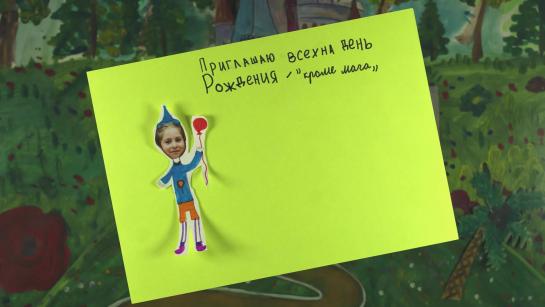 Приглашаю всех на день
Рождения - "кроме мага„